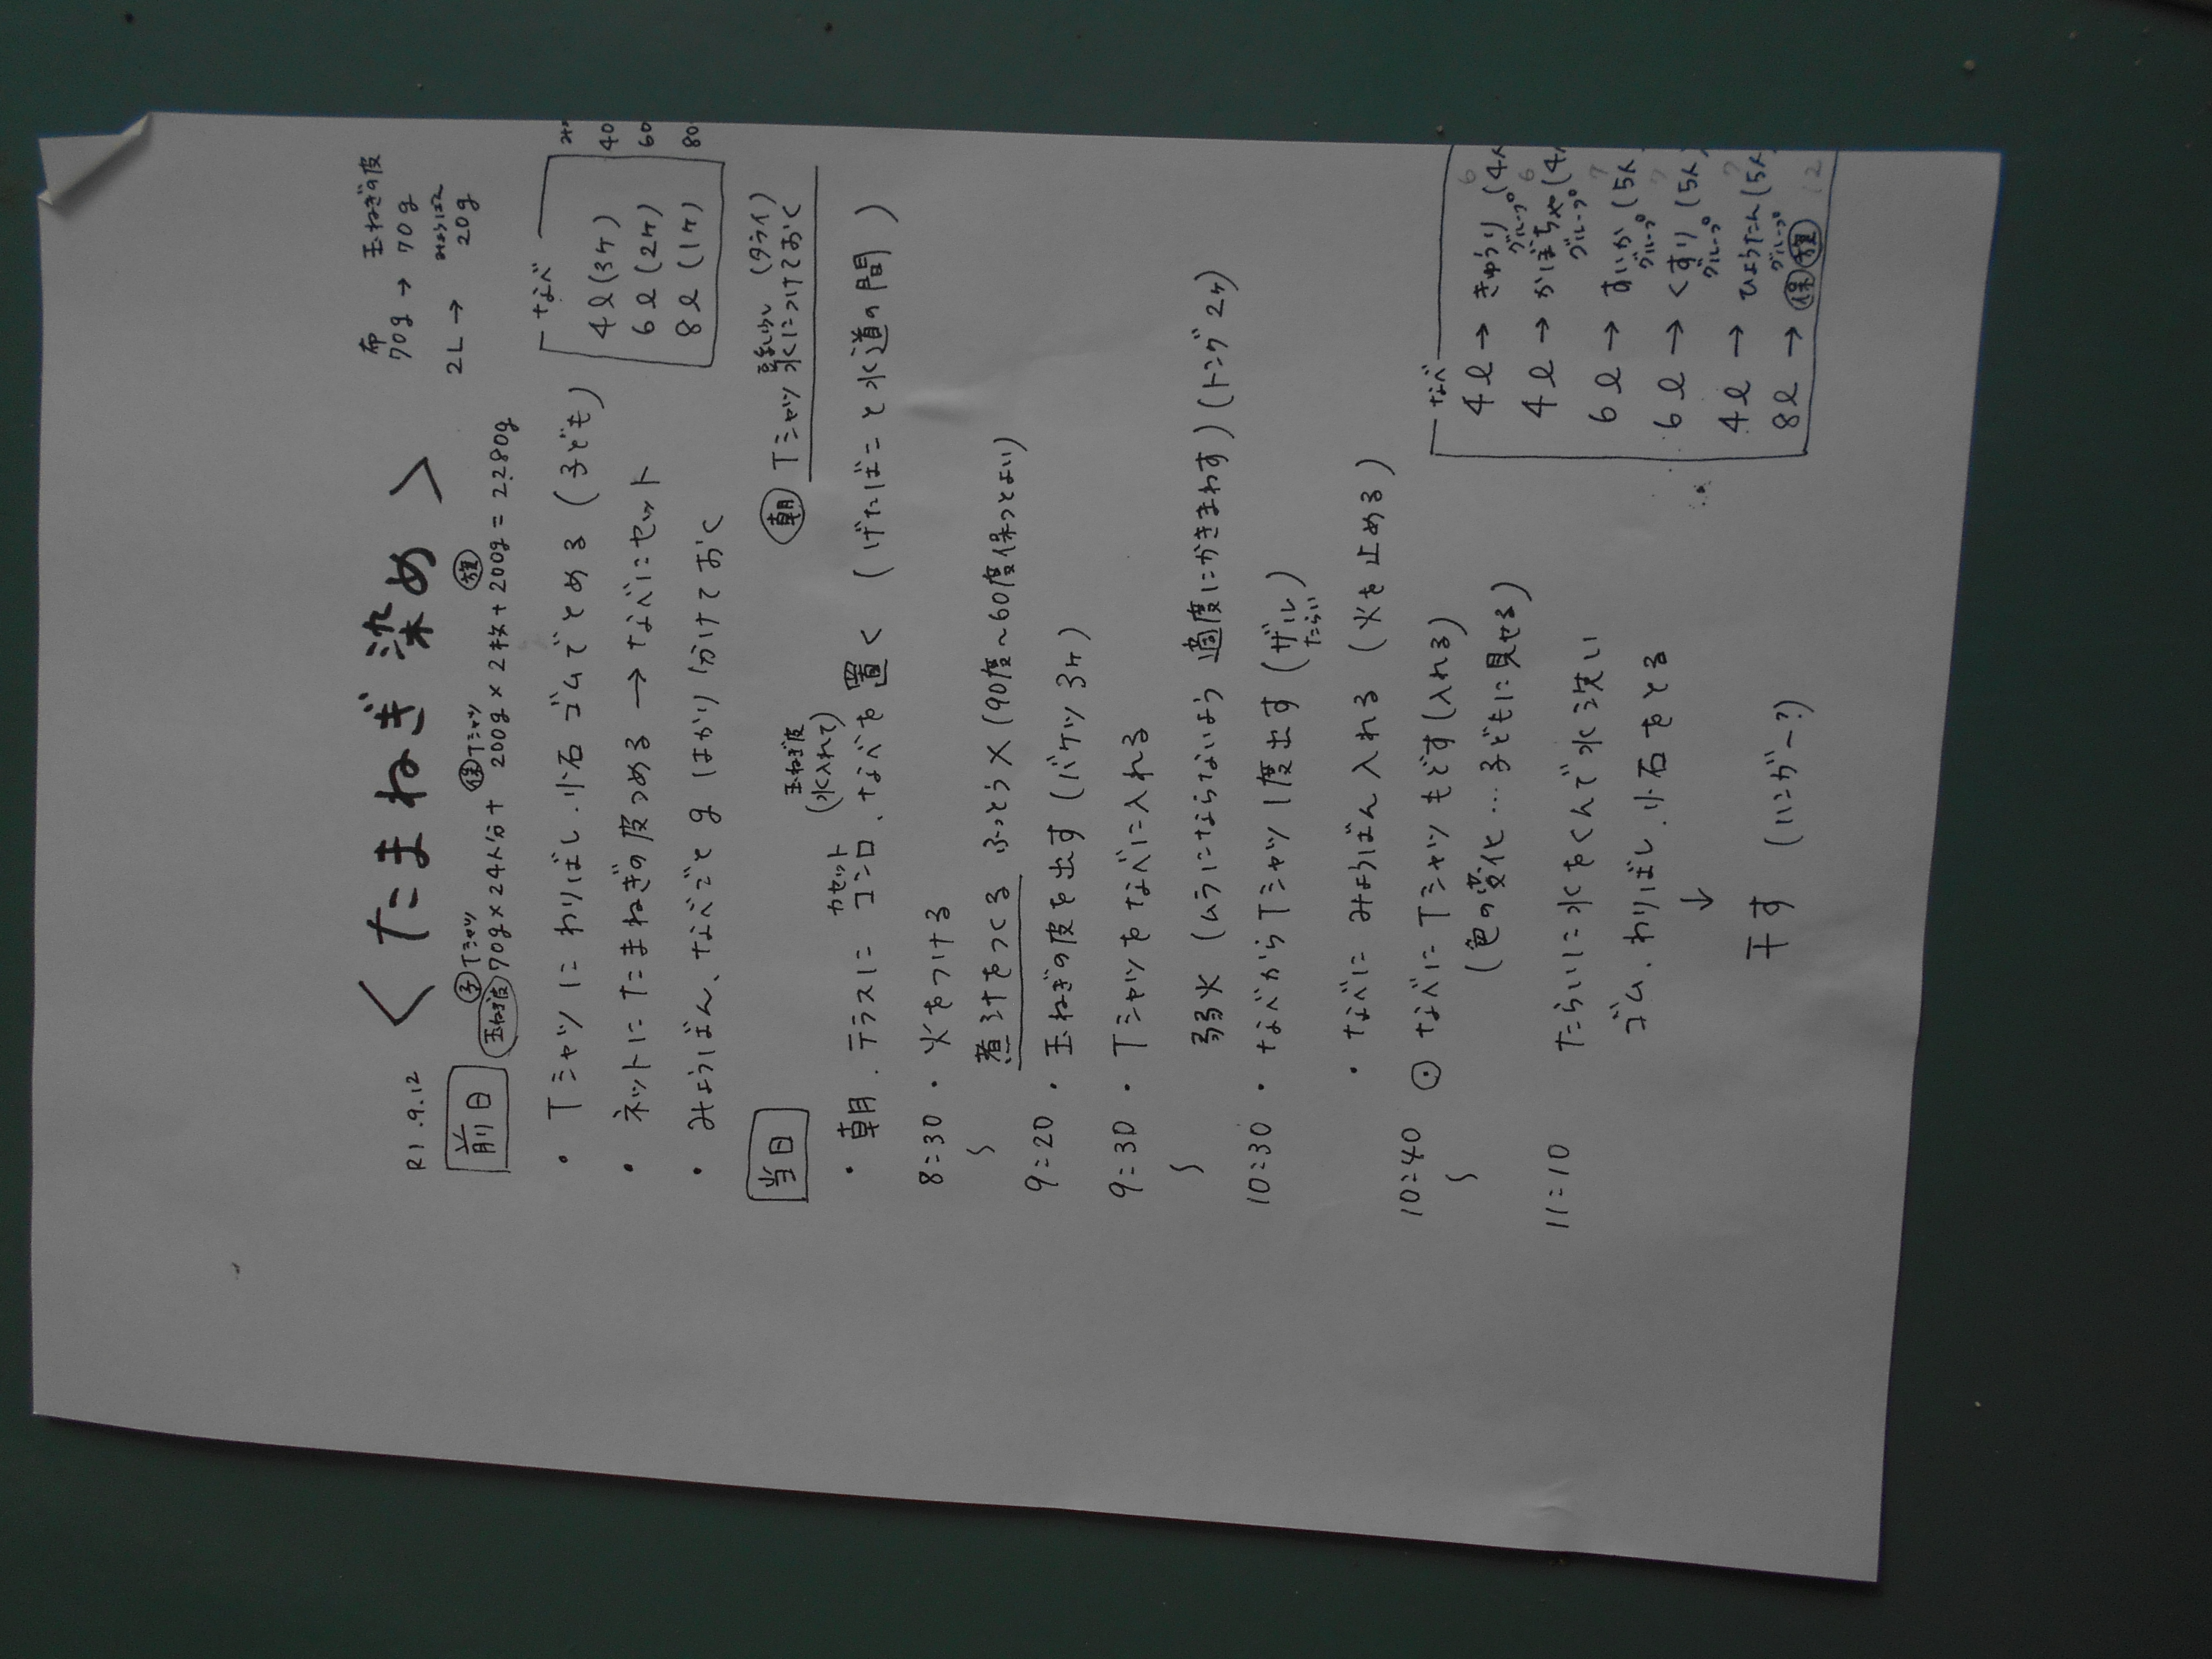 R1.9.12
<たまねぎ染め>
布 玉ねぎの皮
70g → 70g
みょうばん
2L → 20g
前日
子Tシャツ 保Tシャツ 旗
玉ねぎ皮 70g×24人分+200g×2枚+200g=2280g
・Tシャツにわりばし.小石 ゴムでとめる(子ども)
・ネットにたまねぎの皮つめる → なべにセット
・みょうばん、なべごと g はかり分けておく
なべ
4ℓ(3ヶ) 40
6ℓ(2ヶ) 60
8ℓ(1ヶ) 80
当日
朝 Tシャツ 水につけておく (タライ)
玉ねぎ皮
(水入れて)
・朝.テラスに カセットコンロ.なべを置く (げたばこと水道の間)
8:30 ・火をつける
〜 煮汁をつくる ふっとう×(90度〜60度保つとよい)
9:20 ・玉ねぎの皮を出す(バケツ3ヶ)
9:30 ・Tシャツをなべに入れる
〜 弱火(ムラにならないよう 適度にかきまわす)(トング2ヶ)
10:30 ・なべからTシャツ1度出す(ザルたらい)
・なべに みょうばん入れる (火を止める)
10:40 ⊙なべにTシャツもどす(入れる)
〜 (色の変化…子どもに見せる)
11:10 たらいに水をくんで水洗い
ゴム.わりばし.小石をとる
↓
干す (ハンガ〜?)
なべ
4ℓ → きゅうりグループ(4人 6
4ℓ → かぼちゃグループ(4 6
6ℓ → すいかグループ(5人 7
6ℓ → くすりグループ(5人) 7
4ℓ → ひょうたんグループ(5人 7
8ℓ → 保 旗 12